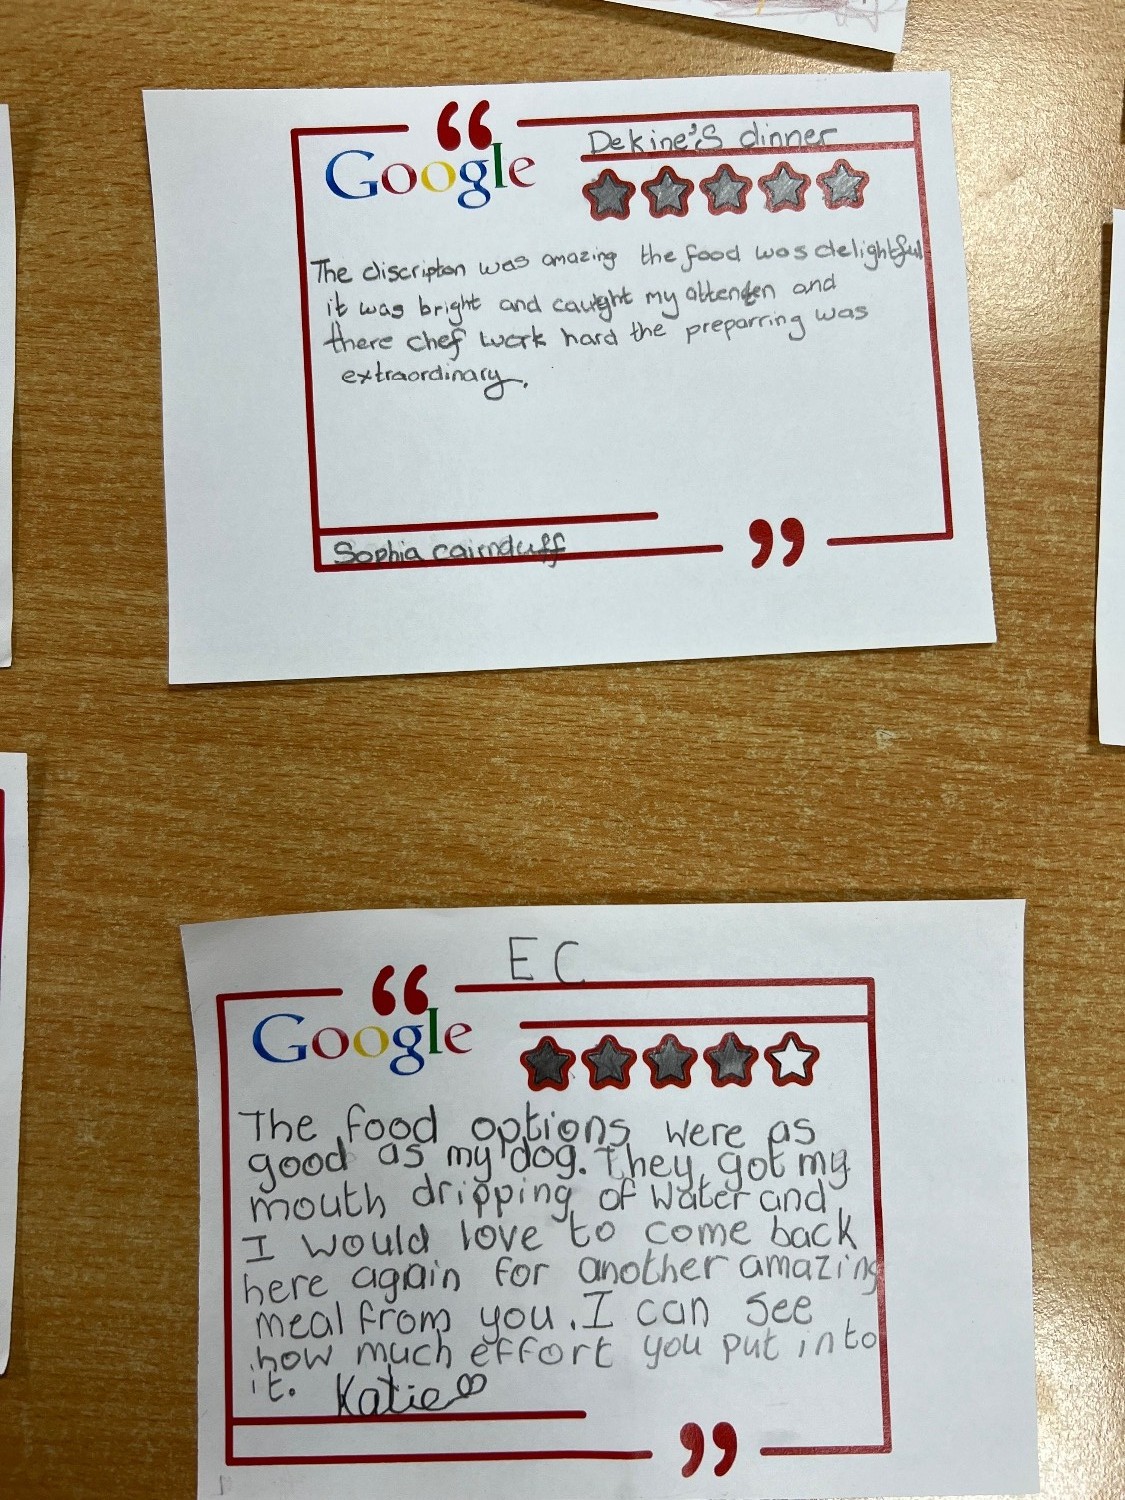 “
Google
Dekine's dinner
The discripton was amazing the food was delightful
it was bright and caught my attenten and
there chef work hard the preparring was
extraordinary.
Sophia cairnduff
”
E C
“
Google
The food options were as
good as my dog. They got my
mouth dripping of water and
I would love to come back
here again for another amazing
meal from you. I can see
how much effort you put into
it. Katie
”